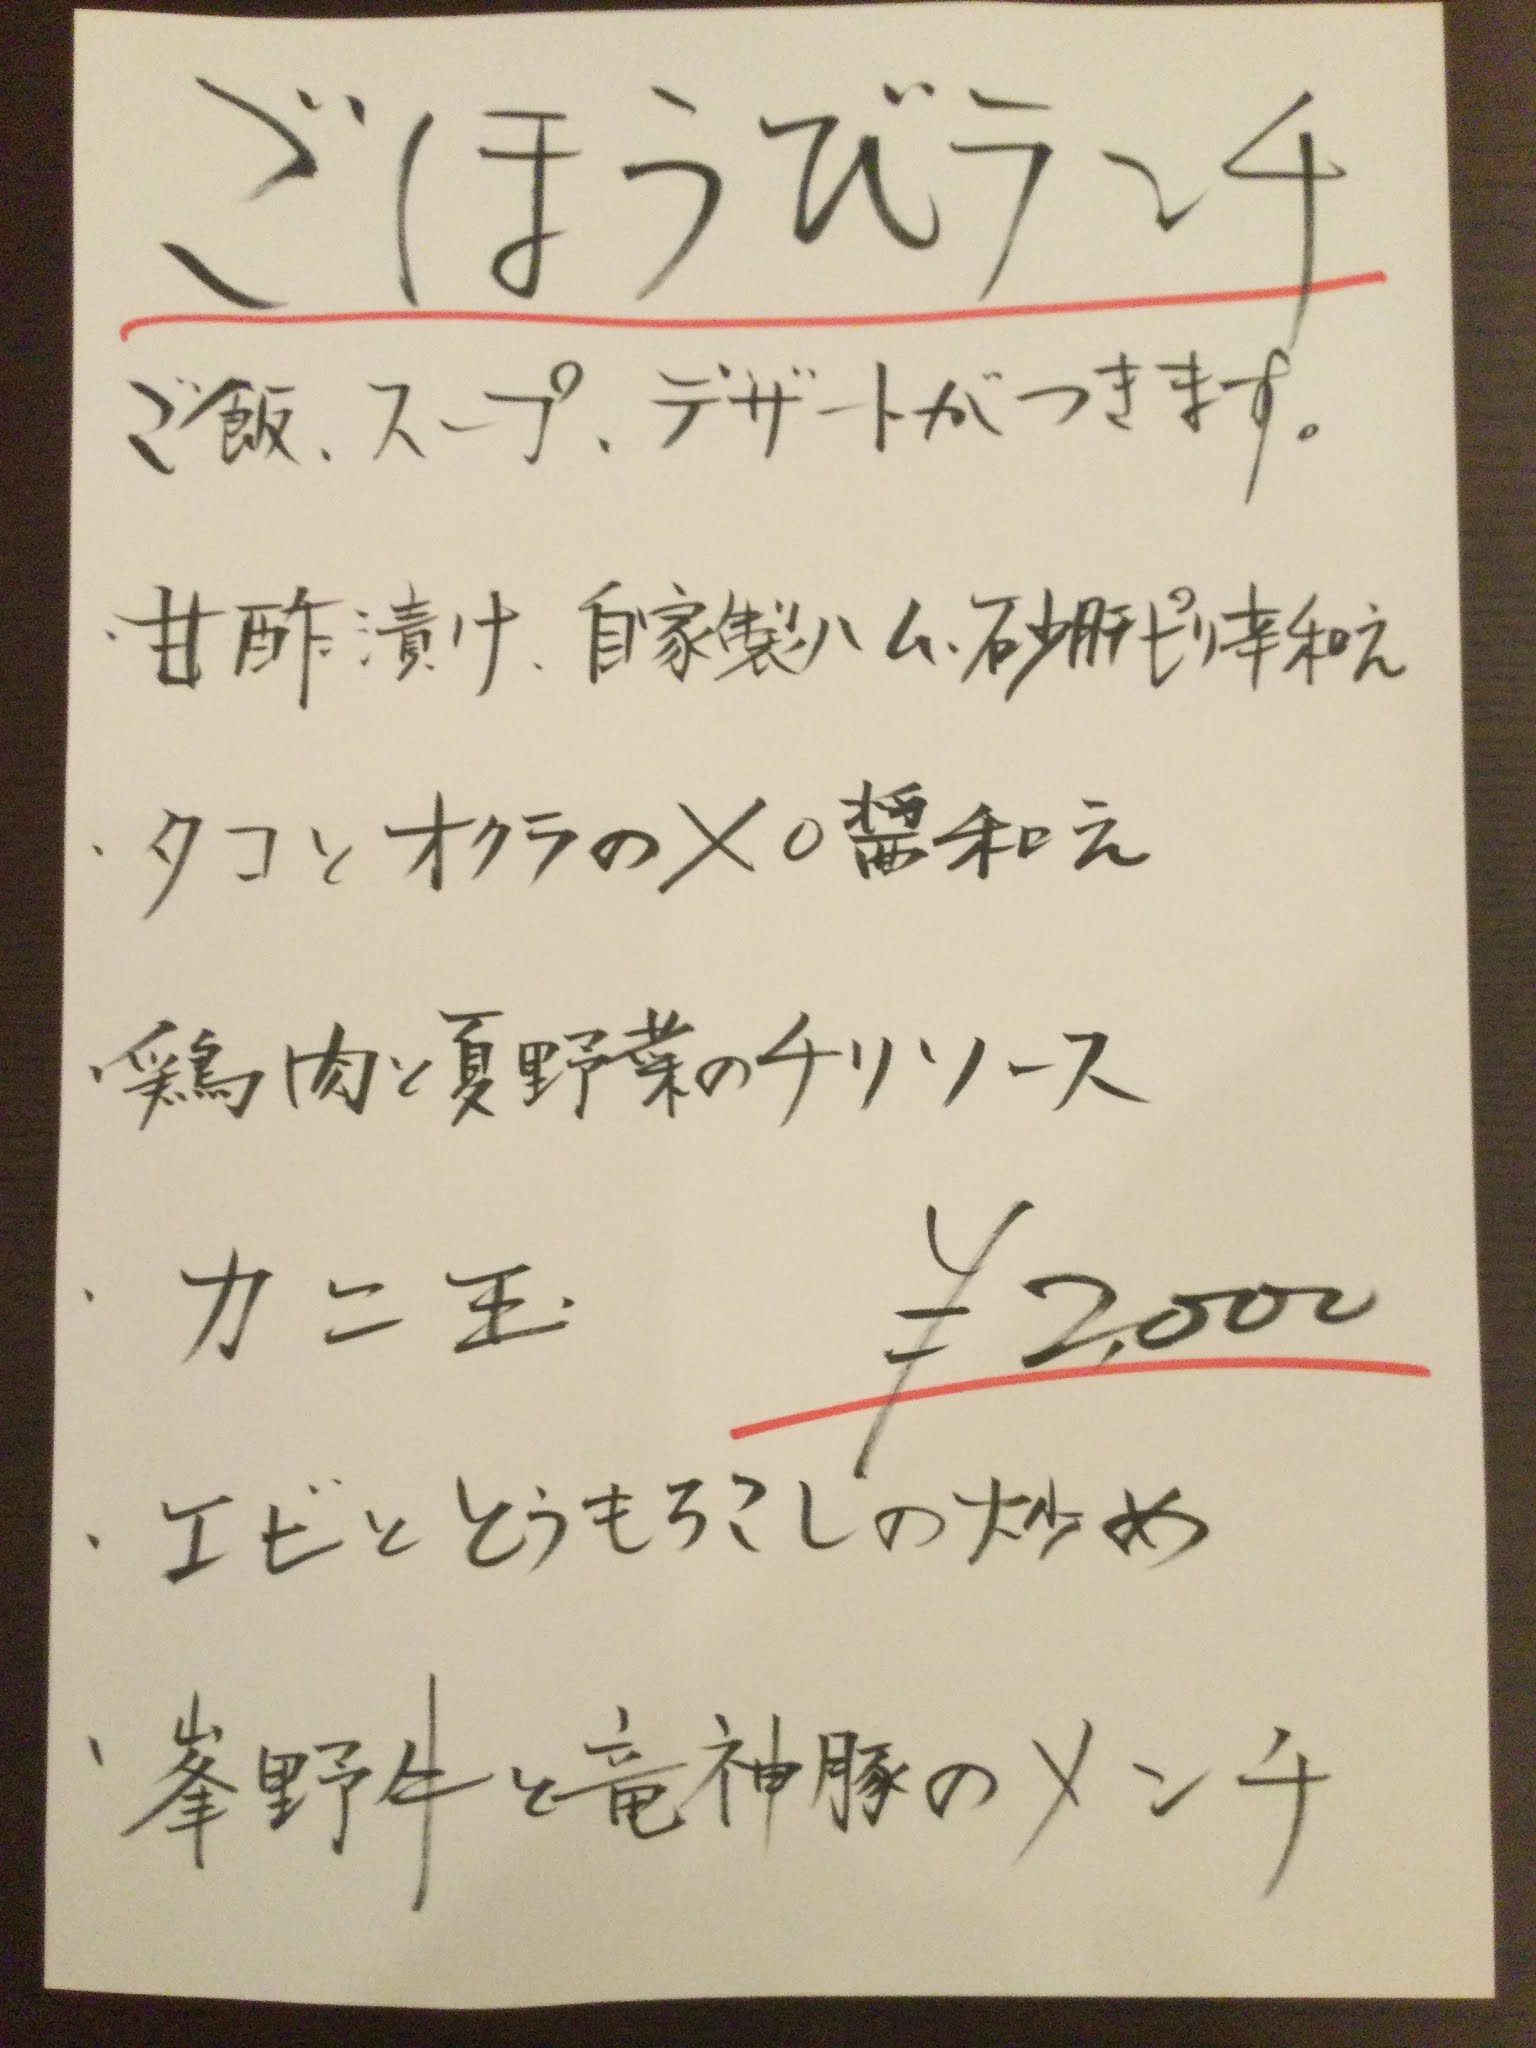 ごほうびランチ
ご飯、スープ、デザートがつきます。
・甘酢漬け、自家製ハム、砂肝ピリ辛和え
・タコとオクラのXO醤和え
・鶏肉と夏野菜のチリソース
・カニ玉 ¥2,000
・エビととうもろこしの炒め
・峯野牛と竜神豚のメンチ